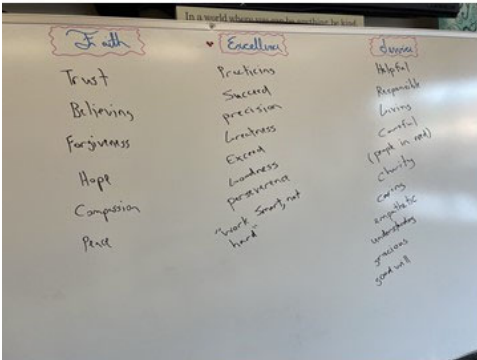 In a world where you can be anything be kind
Faith
Trust
Believing
Forgiveness
Hope
Compassion
Peace
Excellence
Practicing
Succeed
precision
Greatness
Exceed
Goodness
perseverence
"work smart, not
hard"
Service
Helpful
Responsible
Giving
Careful
(people in need)
charity
caring
empathetic
understanding
gracious
good will